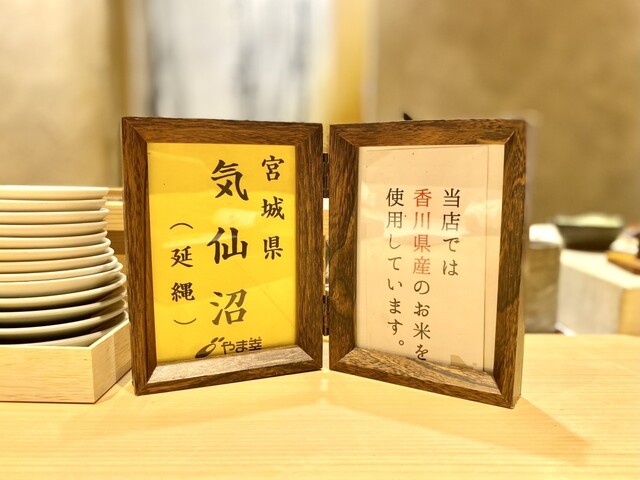 当店では
香川県産のお米を
使用しています。
宮城県
気仙沼
（延縄）
やま幸